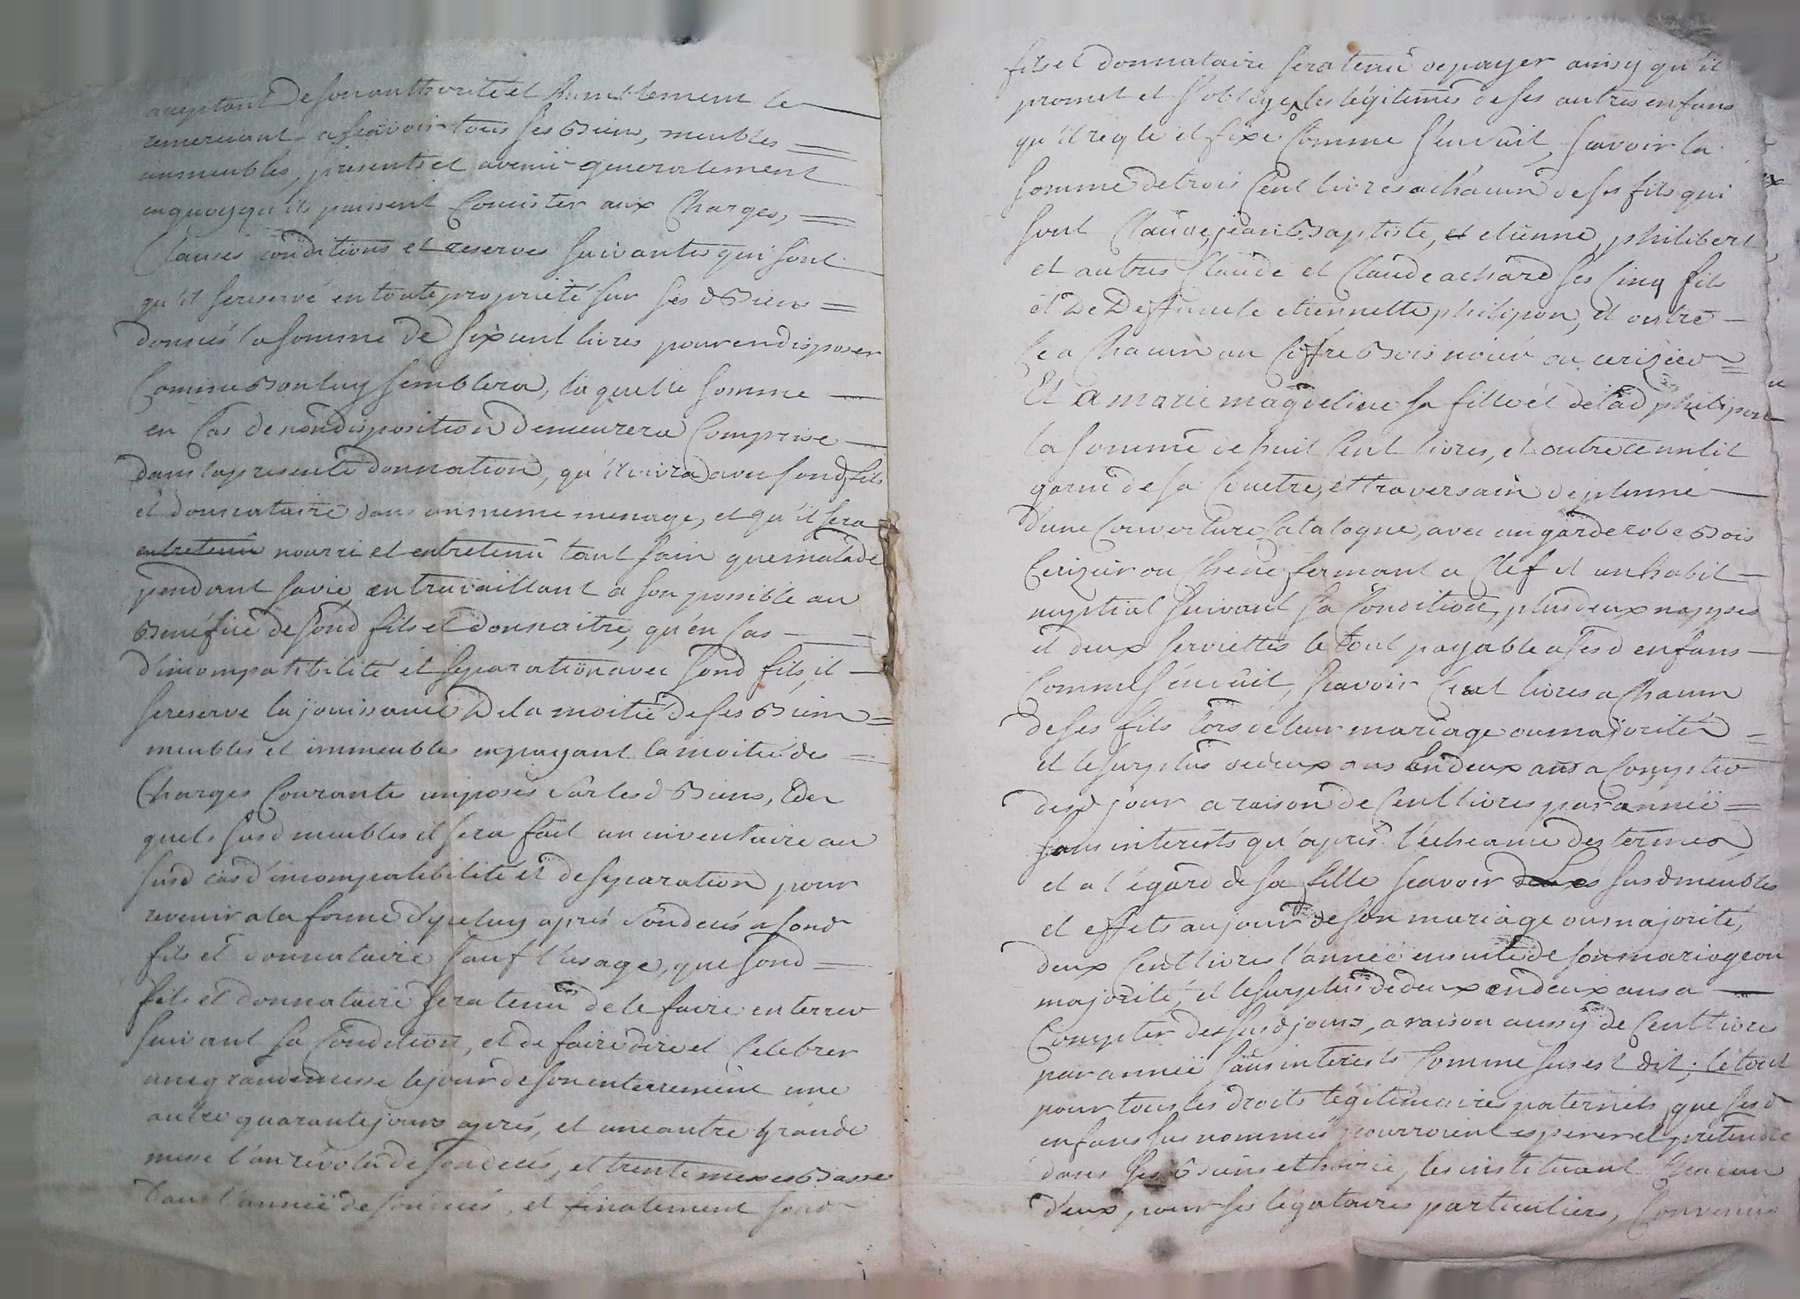 acceptant de son authorité et humblement le
remerciant a sçavoir tous ses biens, meubles
immeubles, presents et avenir generalement
en quoy qu'ils puissent Consister aux Charges,
Clauses conditions et reserves suivantes qui sont
qu'il se reserve en toute proprieté sur ses d biens
donnés la somme de six cent livres pour en disposer
Comme bon luy semblera, laquelle somme
en Cas de non disposition demeurera Comprise
dans la presente donnation, qu'il vivra avec sond fils
et donnataire dans un meme menage, et qu'il sera
entretenu nourri et entretenu tant sain que malade
pendant sa vie en travaillant a son possible au
Benéfice de sond fils et donnaitre, qu'en Cas
d'incompatibilité et separation avec sond fils, il
se reserve la jouissance de la moitié de ses biens
meubles et immeubles en payant la moitié des
Charges Courante imposés sur lesd biens, des
quels susd meubles il sera fait un inventaire au
susd cas d'incompatibilité et de separation pour
revenir a la forme d'yceluy aprés son decés a sond
fils et donnataire sauf l'usage, que sond
fils et donnataire sera tenu de le faire enterrer
suivant sa Condition, et de faire dire et Celebrer
une grande messe le jour de son enterrement une
autre quarante jours aprés, et une autre grande
messe l'an révolu de son decés, et trente messes basse
dans l'année de son decés, et finalement sond
fils et donnataire sera tenu de payer ainsy qu'il
promet et s'oblige les légitimes de ses autres enfans
qu'il regle et fixe Comme s'ensuit, scavoir la
somme de trois Cent livres a chacun de ses fils qui
sont Claude, jean Baptiste, et etienne, philibert
et autres Claude et Claude achard ses Cinq fils
et de deffuncte etiennette philipon, et outre
Ce a Chacun un Coffre bois noié ou cerizier
Et a marie magdeline sa fille et de lad philipon
la somme de huit Cent livres, et outre ce un lit
garni de sa Couetre, et traversain de plume
d'une Couverture Catalogne, avec un garderobe bois
Cerizier ou Chene fermant a Clef et un habit
nuptial suivant sa Condition, plus deux nappes
et deux serviettes le tout payable a ses d enfans
Comme s'ensuit, scavoir Cent livres a Chacun
de ses fils lors de leur mariage ou majorité
et le surplus de deux ans en deux ans a Compter
desd jour a raison de Cent livres par année
sans interests qu'aprés l'echeance des termes
et a l'égard de sa fille scavoir susd meubles
et effets au jour de son mariage ou majorité,
deux Cent livres l'année ensuite de son mariage ou
majorité, et le surplus de deux en deux ans a
Compter des susd jours, a raison aussy de Cent livres
par année sans interests Comme sus est dit, le tout
pour tous les droits légitimaires paternels que ses d
enfans sus nommés pourroient esperer et prétendre
dans ses biens et hoirie, les instituant Chacun
d'eux pour ses légataires particuliers, Convenus